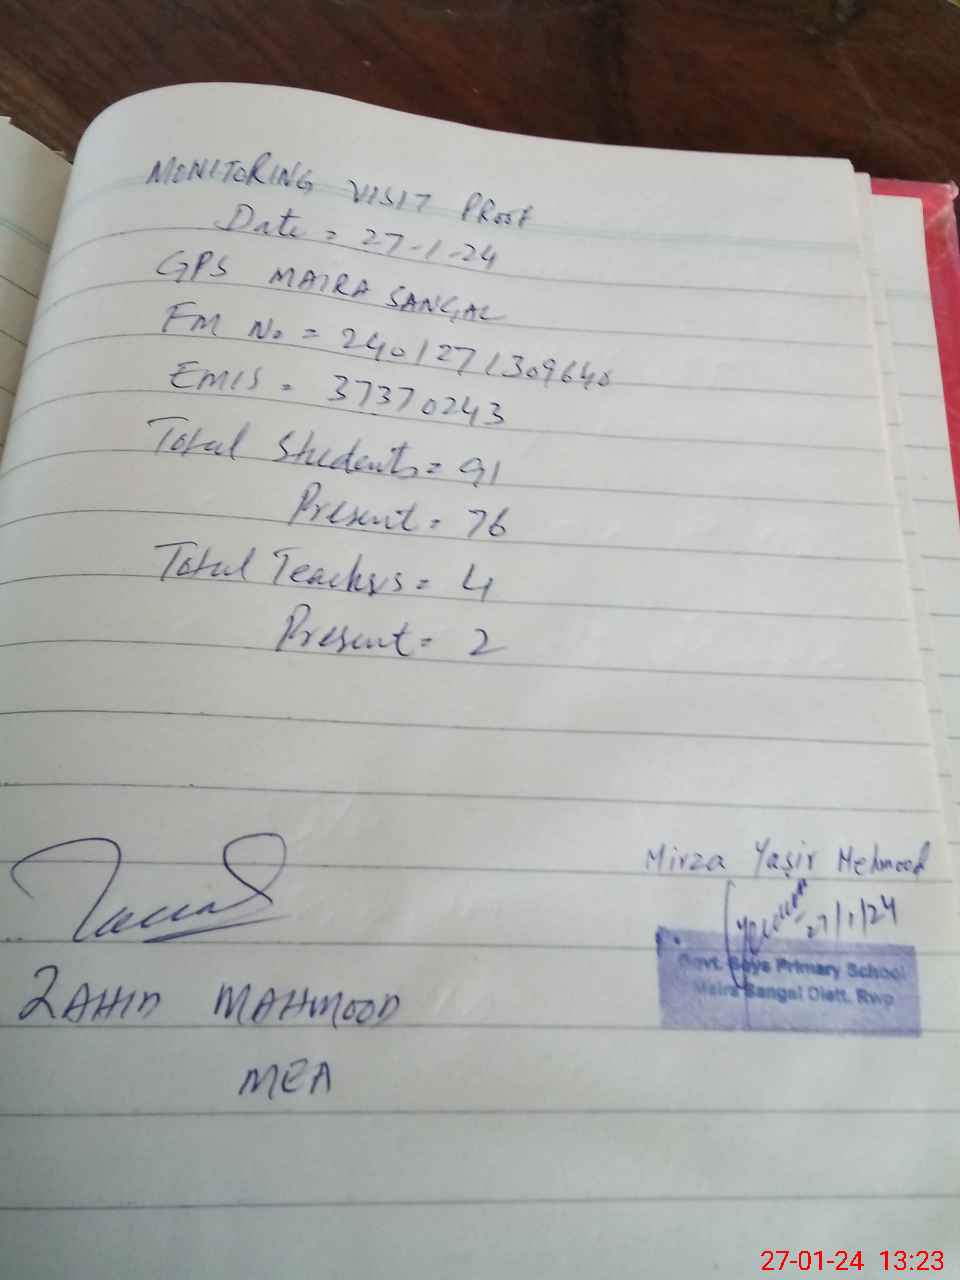 MONITORING VISIT PROOF
Date = 27-1-24
GPS MAIRA SANGAL
FM No = 2401271309640
EMIS = 37370243
Total Students = 91
Present = 76
Total Teachers = 4
Present = 2
Mirza Yasir Mehmood
27/1/24
Govt. Boys Primary School
Maira Sangal Distt. Rwp
ZAHID MAHMOOD
MEA
27-01-24 13:23